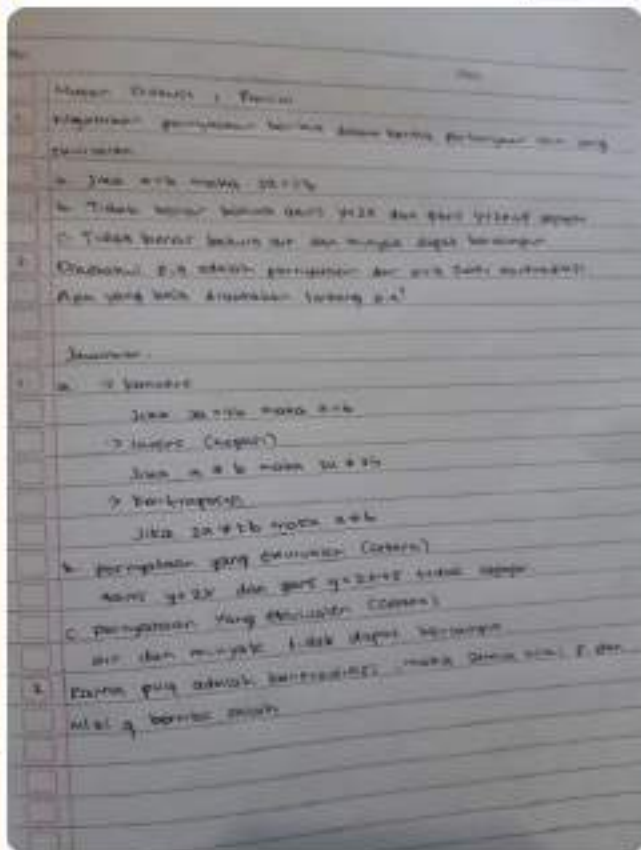 1. pernyataan berikut dalam bentuk yang
ekuivalen
a. Jika a=b maka 2a=2b
b. Tidak benar bahwa garis y=2x dan garis sejajar
c. Tidak benar bahwa air dan minyak dapat bercampur
2. p,q adalah pernyataan dan kontradiksi.
Apa yang bisa dikatakan tentang p,q?
Jawaban.
1. a. → konvers
Jika 2a=2b maka a=b
→ invers
Jika a ≠ b maka 2a ≠ 2b
→ kontraposisi
Jika 2a ≠ 2b maka a≠b
b. pernyataan yang ekuivalen (setara)
garis y=2x dan garis y=2x+5 tidak sejajar
c. pernyataan yang ekuivalen (setara)
air dan minyak tidak dapat bercampur
2. Karna adalah kontradiksi, maka semua nilai p dan
nilai q bernilai salah